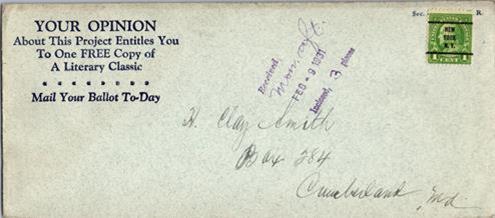 YOUR OPINION
About This Project Entitles You
To One FREE Copy of
A Literary Classic
Mail Your Ballot To-Day
Sec. R.
NEW
YORK
N.Y.
1 CENT 1
Received
FEB - 9 1931
Inclosed, 3 pieces
H. Clay Smith
Box 284
Cumberland, Md.